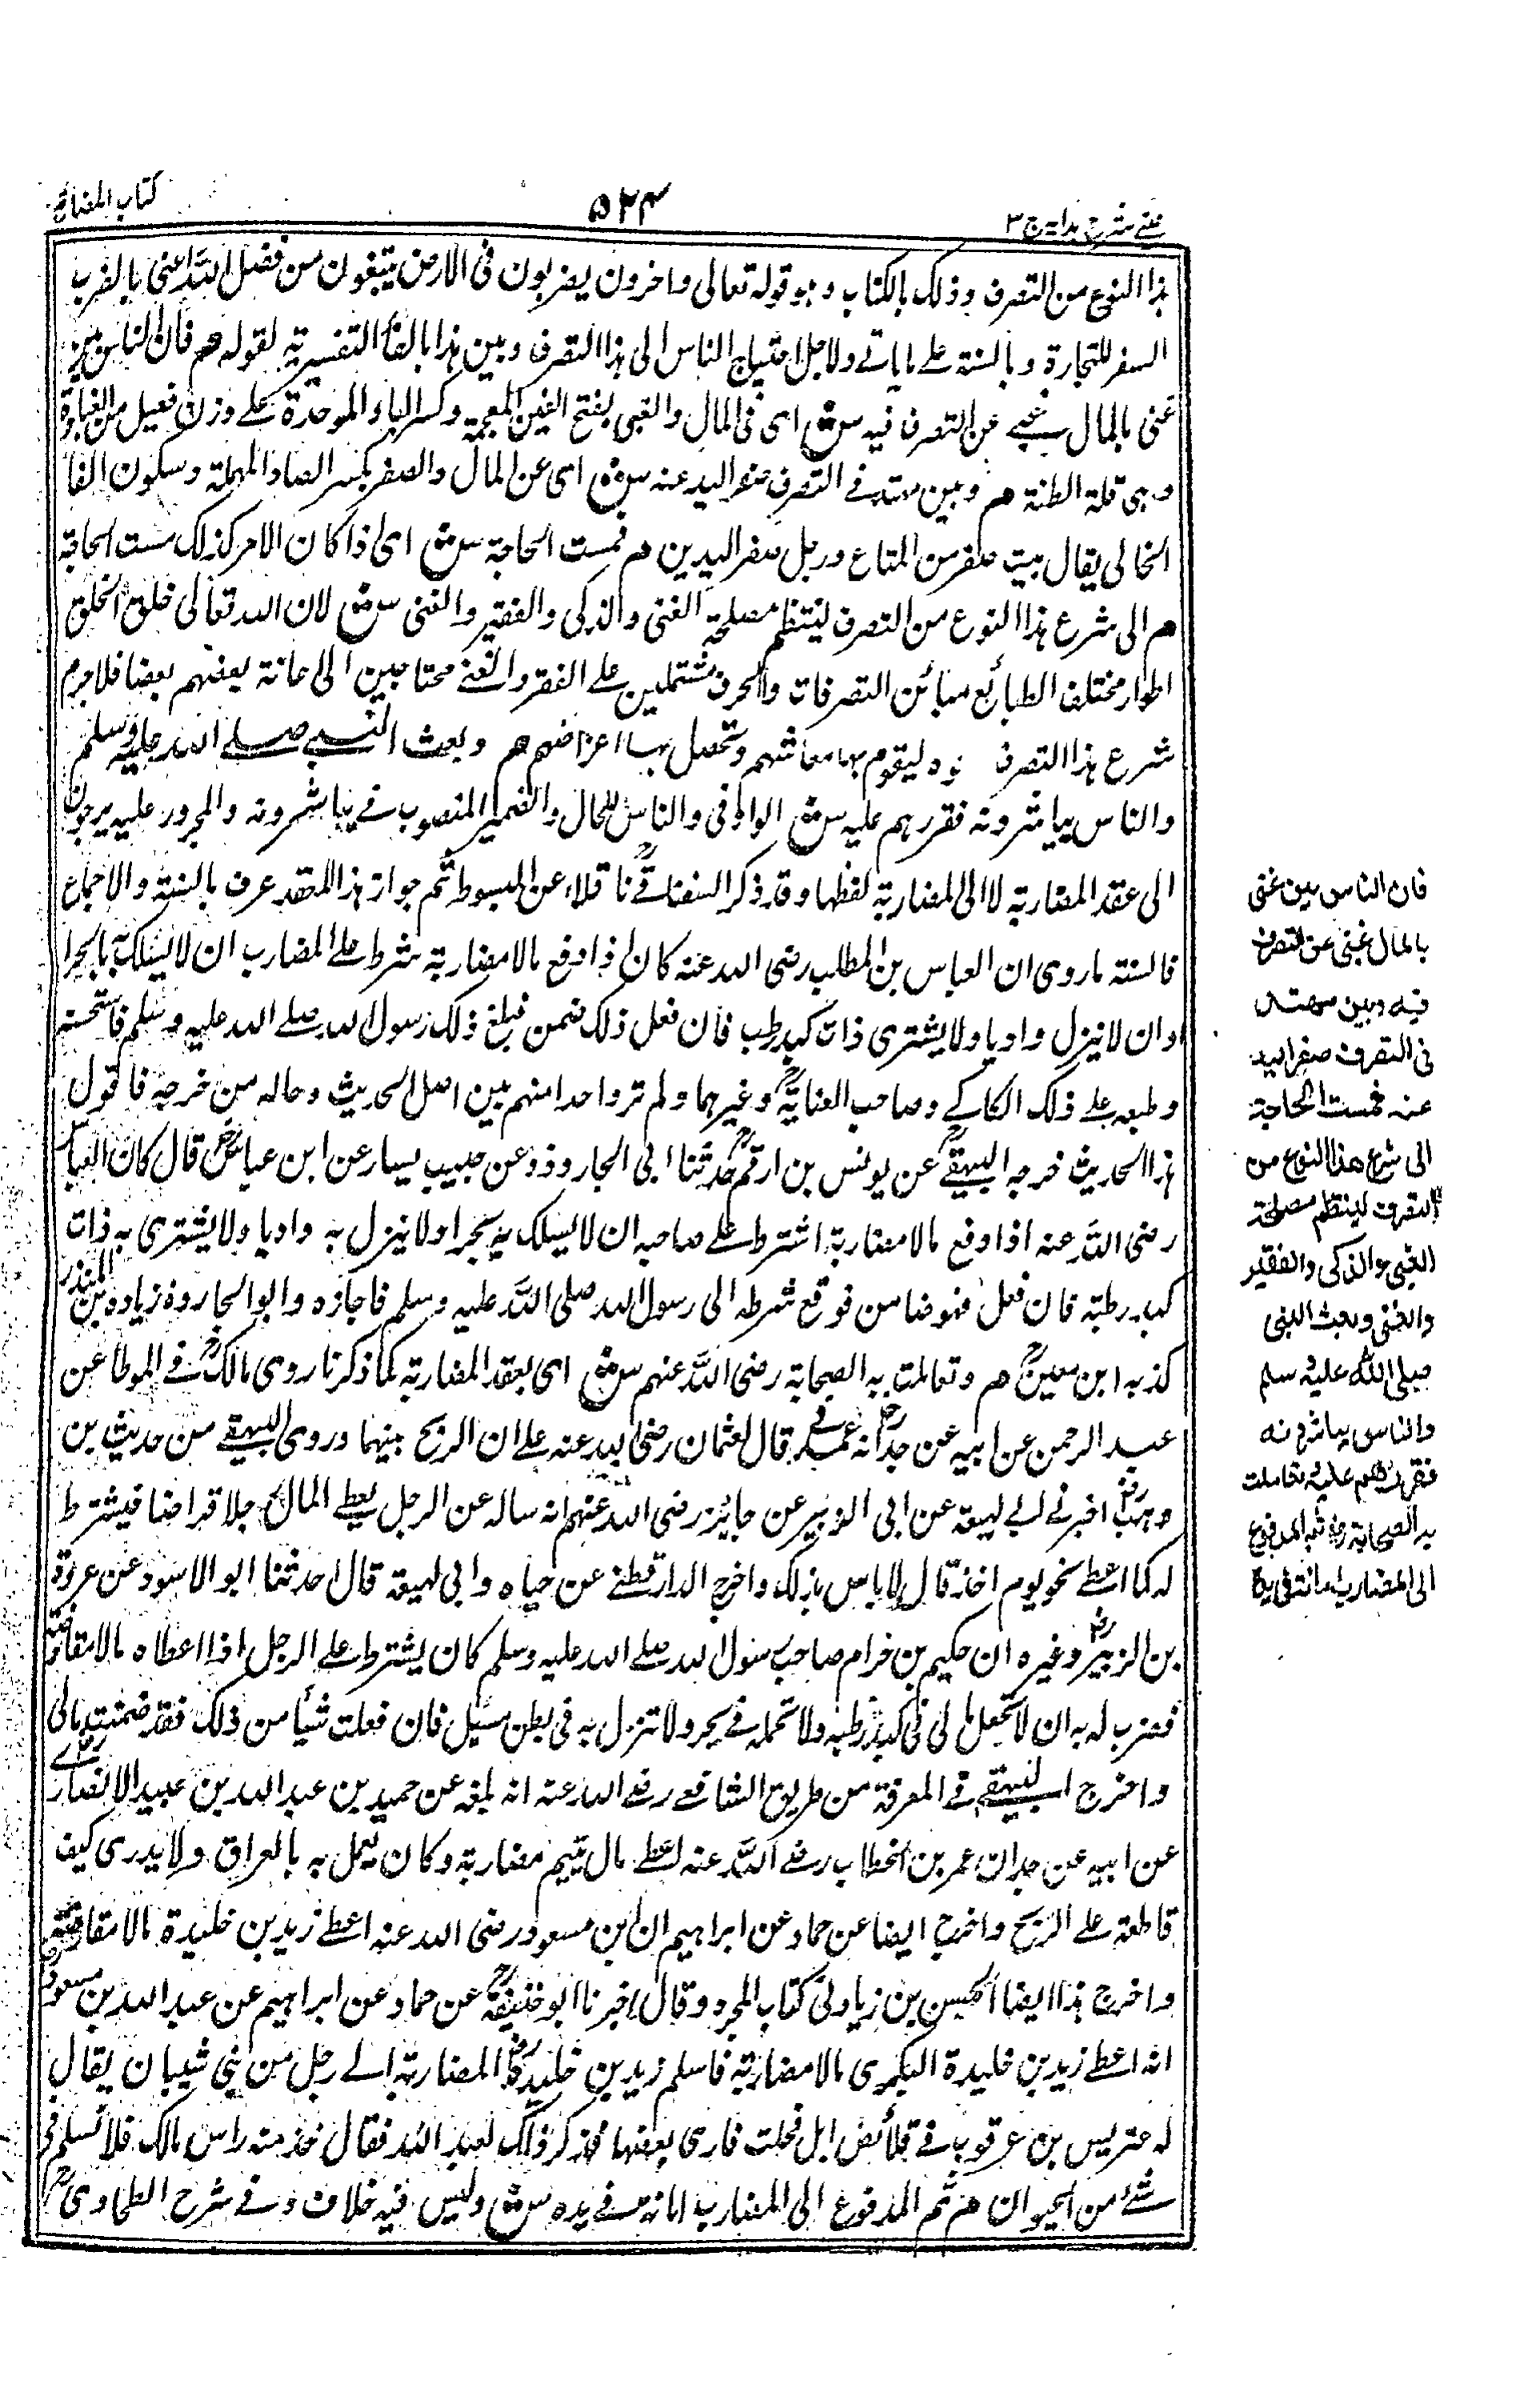 عینی شرح ہدایہ ج ۳
۵۲۴
کتاب المضاربۃ
ہذا النوع من التصرف وذلک بالکتاب وہو قولہ تعالی واخرون یضربون فی الارض یبتغون من فضل اللہ اعنی بالضرب
السفر للتجارۃ وبالسنۃ علے ما یاتے ولاجل احتیاج الناس الی ہذا التصرف وبین ہذا بالفاء التفسیریۃ لقولہ ھم فان الناس بین
غنی بالمال غبی عن التصرف فیہ ش ای فی المال والغبی بفتح الغین المعجمۃ وکسر الباء الموحدۃ علے وزن فعیل من الغباوۃ
وہی قلۃ الفطنۃ ھم وبین مہتد فے التصرف صفر الید عنہ ش ای عن المال والصفر بکسر الصاد المہملۃ وسکون الفا
الخالی یقال بیت صفر من المتاع ورجل صفر الیدین ھم فمست الحاجۃ ش ای اذا کان الامر کذلک مست الحاجۃ
ھم الی شرع ہذا النوع من التصرف لینتظم مصلحۃ الغبی والذکی والفقیر والغنی ش لان اللہ تعالی خلق الخلق
اطوار مختلف الطبائع متبائن التصرفات والحرف مشتملین علے الفقر والغنے محتاجین الی اعانۃ بعضہم بعضا فلا جرم
شرع ہذا التصرف لیقوم بہا معاشہم وتحصل بہا اغراضہم ھم وبعث النبے صلے اللہ علیہ وسلم
والناس یباشرونہ فقررہم علیہ ش الواو فی والناس للحال والضمیر المنصوب فے یباشرونہ والمجرور علیہ یرجعان
الی عقد المضاربۃ لا الی المضاربۃ لفظہا وقد ذکر السغناقے ناقلا عن المبسوط ثم جواز ہذا العقد عرف بالسنۃ والاجماع
فالسنۃ ما روی ان العباس بن المطلب رضی اللہ عنہ کان اذا دفع مالا مضاربۃ شرط علے المضارب ان لا یسلک بہ بحرا
وان لا ینزل وادیا ولا یشتری ذات کبد رطب فان فعل ذلک ضمن فبلغ ذلک رسول اللہ صلے اللہ علیہ وسلم فاستحسنہ
وطبعہ علے ذلک الکاکے وصاحب العنایۃ وغیرہما ولم تر واحدا منہم بین اصل الحدیث وحالہ من خرجہ فاقول
ہذا الحدیث خرجہ البیہقے عن یونس بن ارقم حدثنا ابی الجارود عن حبیب یسار عن ابن عباس قال کان العباس
رضی اللہ عنہ اذا دفع مالا مضاربۃ اشترط علے صاحبہ ان لا یسلک بہ بحرا ولا ینزل بہ وادیا ولا یشتری بہ ذات
کبد رطبۃ فان فعل فہو ضامن فوقع شرطہ الی رسول اللہ صلی اللہ علیہ وسلم فاجازہ وابو الجارود زیادہ بن المنذر
کذبہ ابن معین ھم وتعاملت بہ الصحابۃ رضی اللہ عنہم ش ای بعقد المضاربۃ کما ذکرنا روی مالک فے الموطا عن
عبد الرحمن عن ابیہ عن جدہ انہ عمل فے مال لعثمان رضی اللہ عنہ علے ان الربح بینہما وروی البیہقے من حدیث بن
وہب اخبرنے ابے لہیعۃ عن ابی الزبیر عن جابر رضی اللہ عنہم انہ سالہ عن الرجل یعطے المال رجلا قراضا فیشترط
لہ کما اعطے نحو یوم اخذ قال لا باس بذلک واخرج الدارقطنے عن حیاہ وابی لہیعۃ قال احدثنا ابو الاسود عن عروۃ
بن الزبیر وغیرہ ان حکیم بن حزام صاحب رسول اللہ صلے اللہ علیہ وسلم کان یشترط علے الرجل اذا اعطاہ مالا مقارضۃ
فضرب لہ بہ ان لا تجعل مالی فی کبد رطبہ ولا تحملہ فے بحر ولا تنزل بہ فی بطن مسیل فان فعلت شیئا من ذلک فقد ضمنت مالی
واخرج البیہقے فے المعرفۃ من طریق الشافعے رضے اللہ عنہ انہ بلغہ عن حمید بن عبد اللہ بن عبید الانصارے
عن ابیہ عن جدہ ان عمر بن الخطاب رضے اللہ عنہ اعطے مال یتیم مضاربۃ وکان یعمل بہ بالعراق ولا یدری کیف
قاطعہ علے الربح واخرج ایضا عن حماد عن ابراہیم ان ابن مسعود رضی اللہ عنہ اعطے زید بن خلیدۃ مالا مقارضۃ
واخرج ہذا ایضا الحسن بن زیاد فی کتاب المجرد وقال اخبرنا ابو حنیفۃ عن حماد عن ابراہیم عن عبد اللہ بن مسعود
انہ اعطے زید بن خلیدۃ البکری مالا مضاربۃ فاسلم زید بن خلیدۃ المضاربۃ الے رجل من بنی شیبان یقال
لہ عتریس بن عرقوب فے قلائص ابل فحلت فاری بعضہا فذکر ذلک لعبد اللہ فقال خذ منہ راس مالک فلا تسلم فی
شئے من الحیوان ھم ثم المدفوع الی المضارب امانۃ فے یدہ ش ولیس فیہ خلاف وفے شرح الطحاوی
فان الناس بین غنی
بالمال غبی عن التصرف
فیہ وبین مھتد
فی التصرف صفر الید
عنہ فمست الحاجۃ
الی شرع ھذا النوع من
التصرف لینتظم مصلحۃ
الغبی والذکی والفقیر
والغنی وبعث النبی
صلی اللہ علیہ وسلم
والناس یباشرونہ
فقررھم علیہ وتعاملت
بہ الصحابۃ رض ثم المدفوع
الی المضارب امانۃ فی یدہ